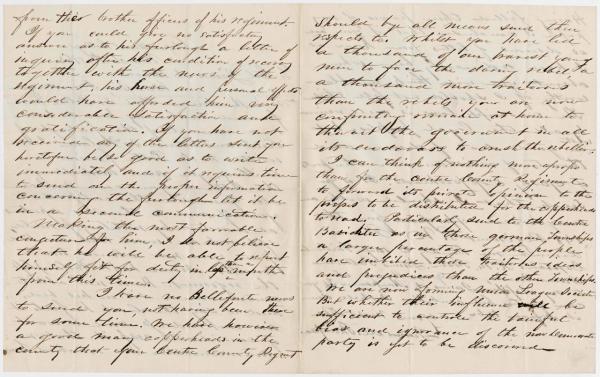 from his brother officers of his regiment.
If you could give no satisfactory
answer as to his furlough a letter of
inquiry after his condition of recovery
together with the news of the
Regiment, his horse and personal effects
would have afforded him very
considerable satisfaction and
gratification. If you have not
received any of the letters sent you
heretofore be so good as to write
immediately and if it requires time
to send on the proper information
concerning the furlough let it be
in a second communication.
Making the most favorable
conjecture for him, I do not believe
that he will be able to report
himself fit for duty in months
from this time.
I have no Bellefonte news
to send you, not having been there
for some time. We have however
a good many copperheads in the
county that your Centre County Regt
should by all means send their
respects to. Whilst you have
a thousand of our bravest young
men to face the daring rebels,
a thousand more traitorous
than the rebels you are now
confronting remain at home to
thwart the government in all
its endeavors to crush the rebellion.
I can think of nothing more apropos
than for the Centre County Regiment
to forward its private opinion to the
press to be distributed for the copperheads
to read. Particularly send to the Centre
as in those german Townships
a larger percentage of the people
have imbibed these traitorous ideas
and prejudices than the other Townships.
We are now forming Union League Societies
But whether their influence will be
sufficient to control the
bias and ignorance of the non Democratic
party is yet to be discovered